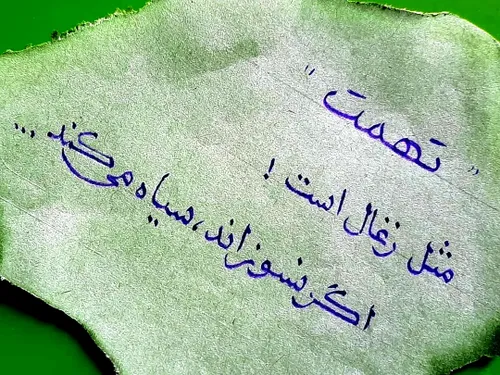 "تهمت"
مثل زغال است !
اگر نسوزاند، سیاه می‌کند...